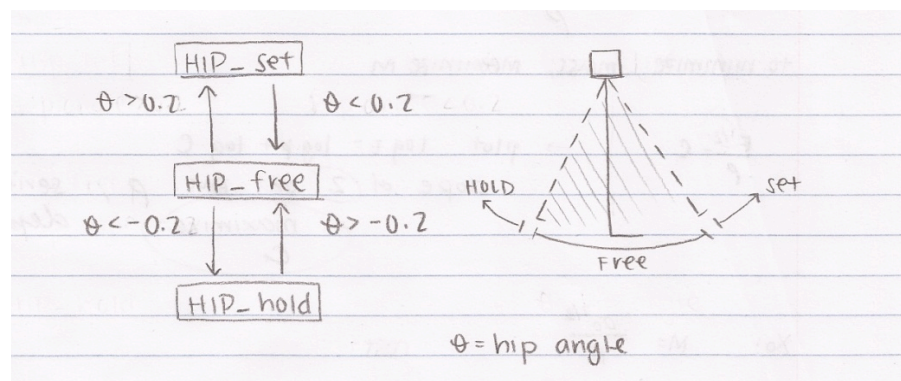 HIP_set
θ>0.2
θ<0.2
HIP_free
θ<-0.2
θ>-0.2
HIP_hold
HOLD
set
Free
θ=hip angle